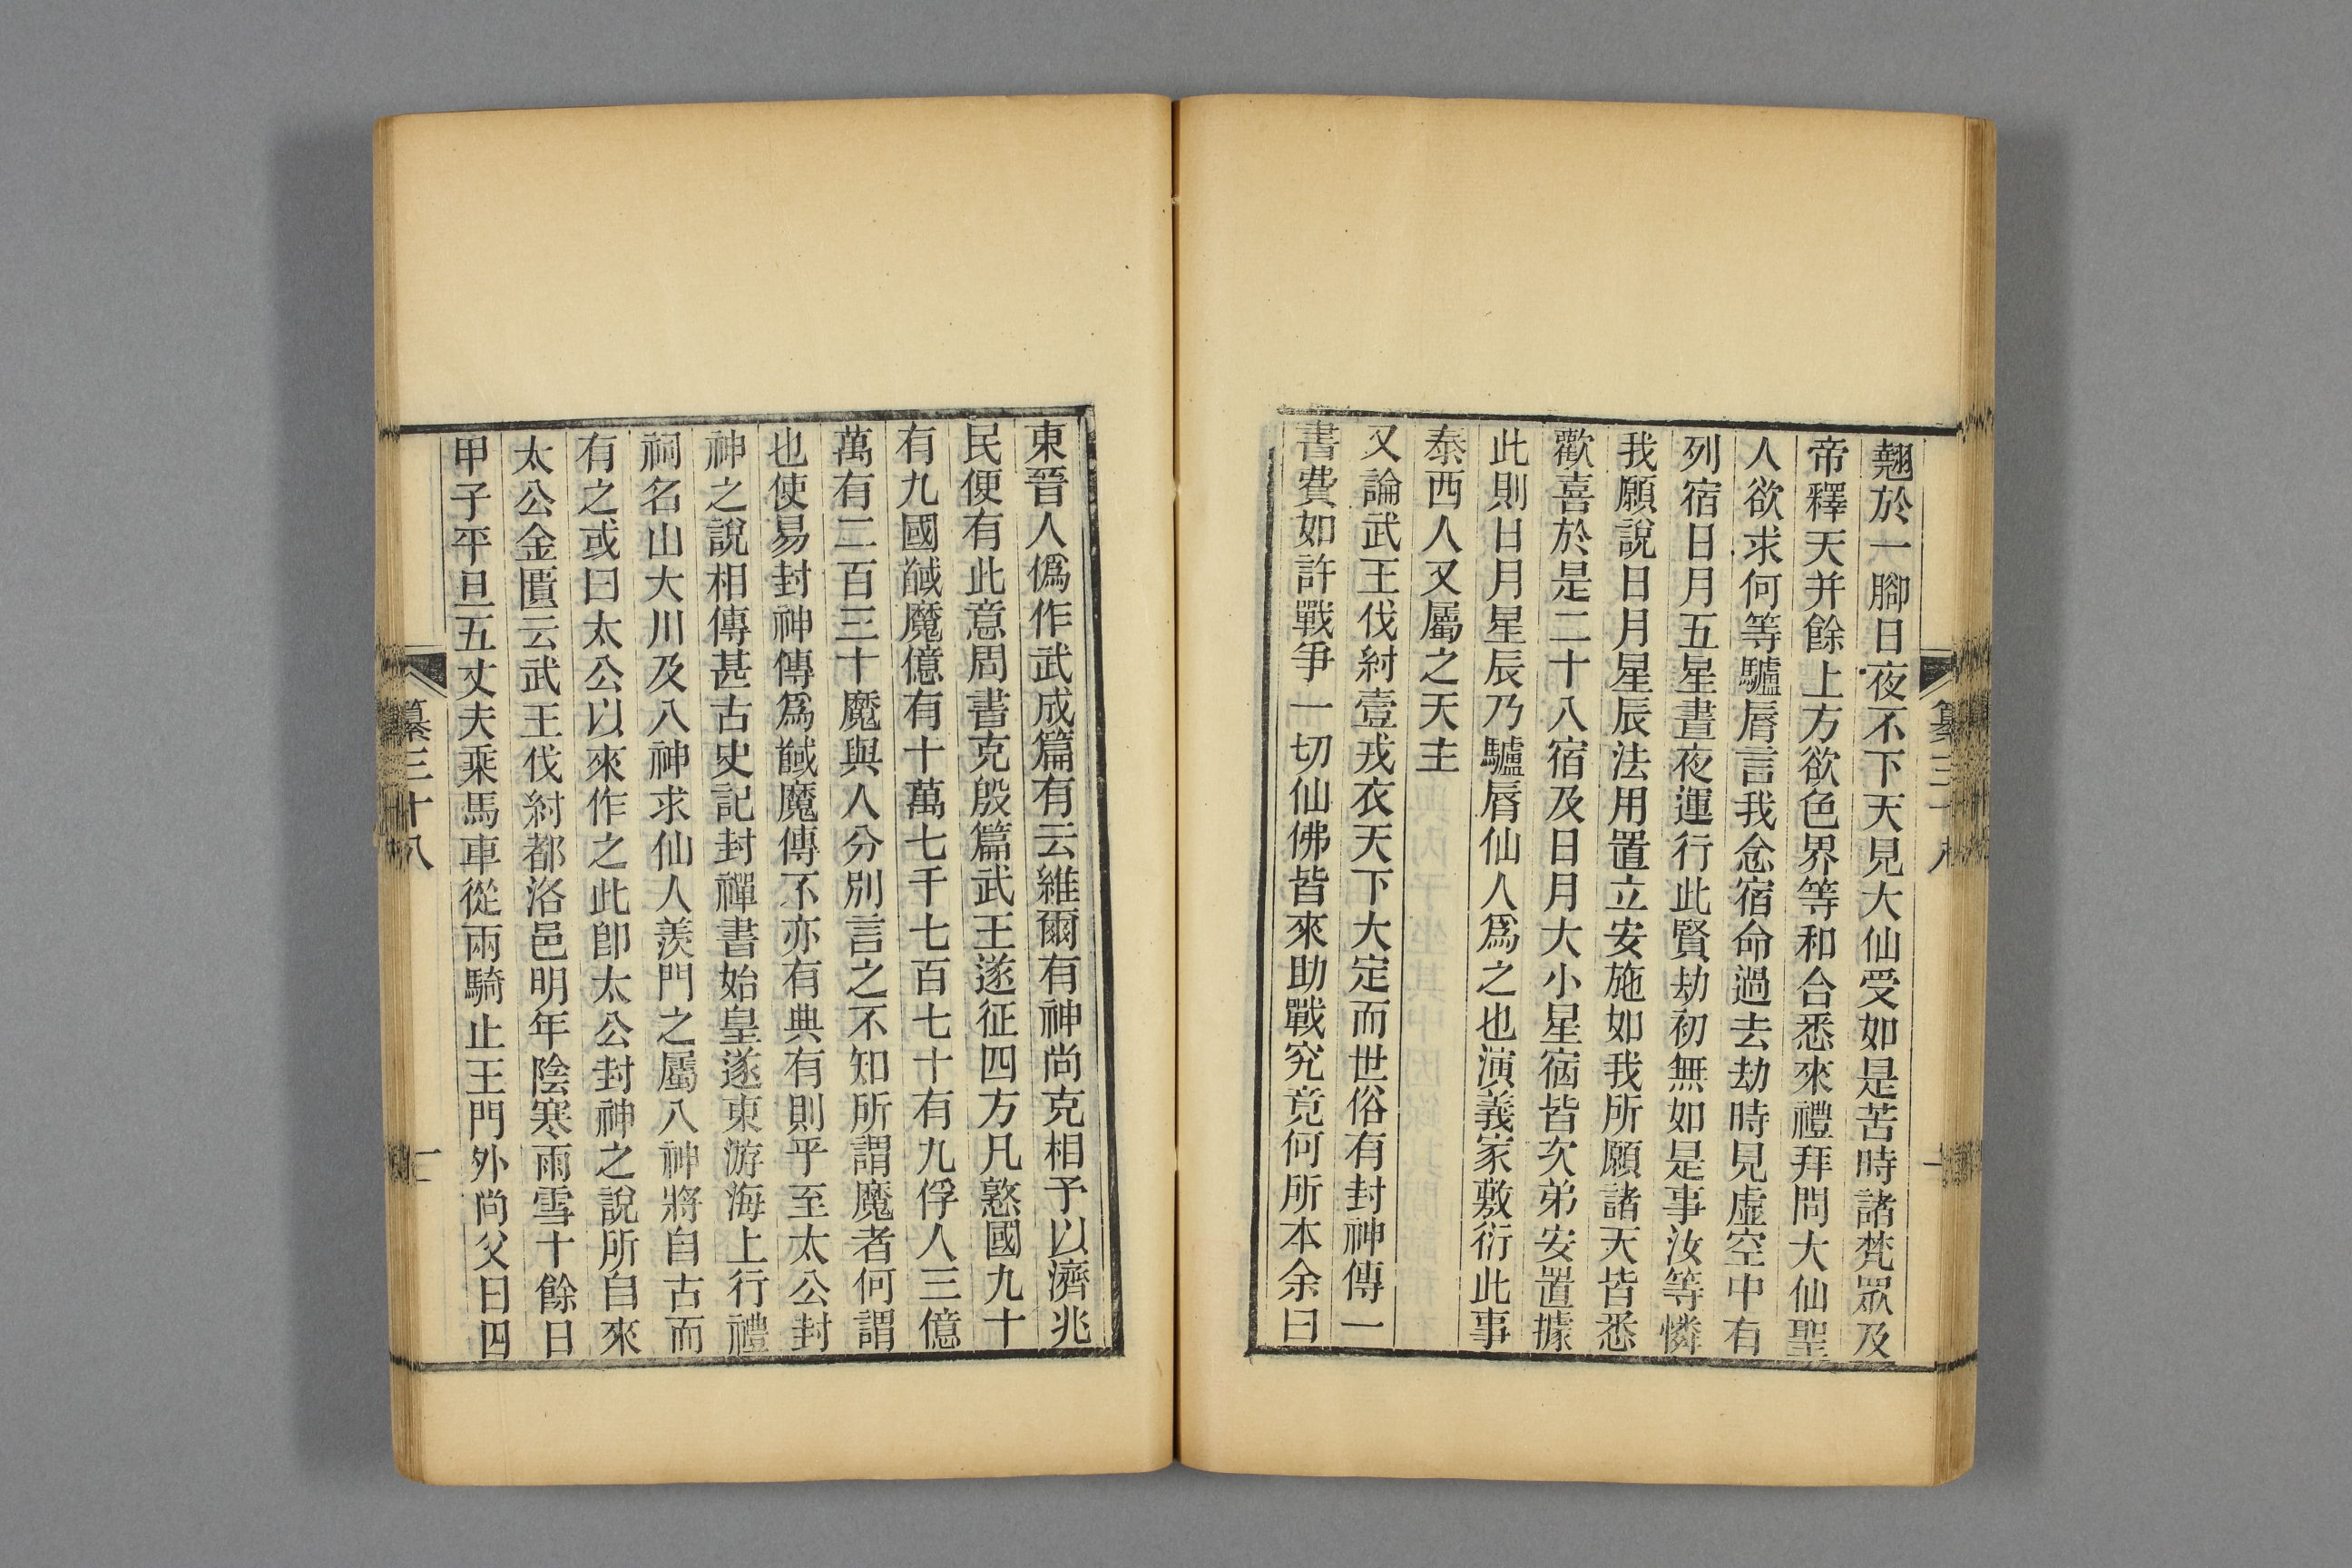 翹於一腳日夜不下天見大仙受如是苦時諸梵眾及
帝釋天并餘上方欲色界等和合悉來禮拜問大仙聖
人欲求何等驢脣言我念宿命過去劫時見虛空中有
列宿日月五星晝夜運行此賢劫初無如是事汝等憐
我願說日月星辰法用置立安施如我所願諸天皆悉
歡喜於是二十八宿及日月大小星宿皆次弟安置據
此則日月星辰乃驢脣仙人爲之也演義家敷衍此事
泰西人又屬之天主
又論武王伐紂壹戎衣天下大定而世俗有封神傳一
書費如許戰爭一切仙佛皆來助戰究竟何所本余曰
東晉人僞作武成篇有云維爾有神尚克相予以濟兆
民便有此意周書克殷篇武王遂征四方凡憝國九十
有九國馘魔億有十萬七千七百七十有九俘人三億
萬有二百三十魔與人分別言之不知所謂魔者何謂
也使易封神傳爲馘魔傳不亦有典有則乎至太公封
神之說相傳甚古史記封禪書始皇遂東游海上行禮
祠名山大川及八神求仙人羨門之屬八神將自古而
有之或曰太公以來作之此卽太公封神之說所自來
太公金匱云武王伐紂都洛邑明年陰寒雨雪十餘日
甲子平旦五丈夫乘馬車從兩騎止王門外尚父曰四
纂三十八